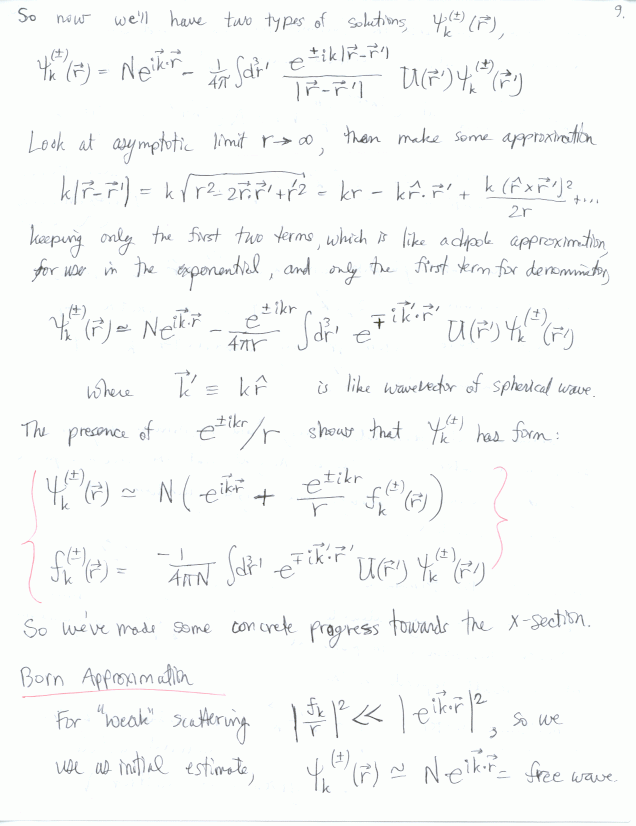 9.
So now we'll have two types of solutions, ψ_k^(±)(r⃗),
ψ_k^(±)(r⃗) = N e^{ik⃗·r⃗} - 1/4π ∫d³r' e^{±ik|r⃗-r⃗'|} / |r⃗-r⃗'| U(r⃗') ψ_k^(±)(r⃗')
Look at asymptotic limit r→∞, then make some approximation
k|r⃗-r⃗'| = k √(r² - 2r⃗·r⃗' + r'²) = kr - k r̂·r⃗' + k(r̂×r⃗')²/2r + ...
keeping only the first two terms, which is like a dipole approximation,
for use in the exponential, and only the first term for denominator,
ψ_k^(±)(r⃗) ≃ N e^{ik⃗·r⃗} - e^{±ikr}/4πr ∫d³r' e^{∓ik⃗'·r⃗'} U(r⃗') ψ_k^(±)(r⃗')
where k⃗' ≡ k r̂ is like wavevector of spherical wave.
The presence of e^{±ikr}/r shows that ψ_k^(±) has form:
ψ_k^(±)(r⃗) ≃ N ( e^{ik⃗·r⃗} + e^{±ikr}/r f_k^(±)(r⃗) )
f_k^(±)(r⃗) = -1/4πN ∫d³r' e^{∓ik⃗'·r⃗'} U(r⃗') ψ_k^(±)(r⃗')
So we've made some concrete progress towards the x-section.
Born Approximation
For "weak" scattering |f_k/r|² << |e^{ik⃗·r⃗}|², so we
use as initial estimate, ψ_k^(±)(r⃗) ≃ N e^{ik⃗·r⃗} = free wave